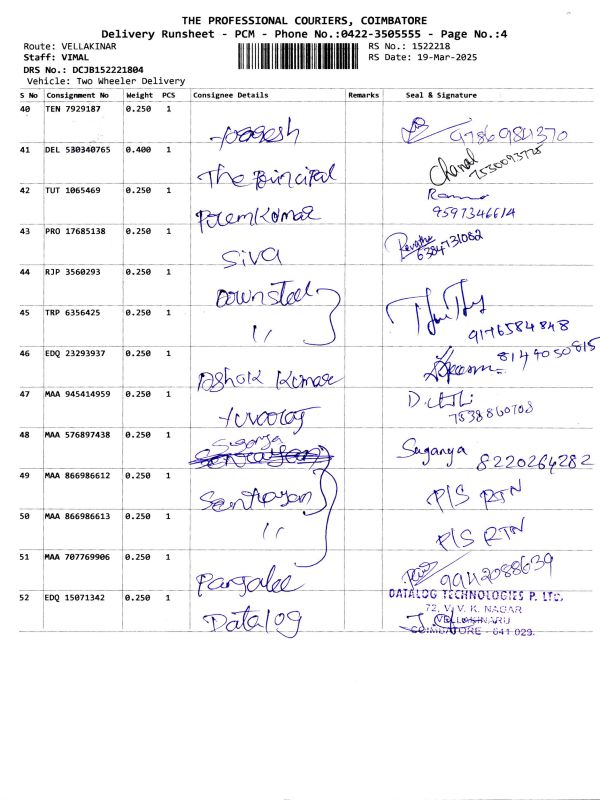 THE PROFESSIONAL COURIERS, COIMBATORE
Delivery Runsheet - PCM - Phone No.:0422-3505555 - Page No.:4
Route: VELLAKINAR RS No.: 1522218
Staff: VIMAL RS Date: 19-Mar-2025
DRS No.: DCJB152221804
Vehicle: Two Wheeler Delivery
S No Consignment No Weight PCS Consignee Details Remarks Seal & Signature
40 TEN 7929187 0.250 1 Yogesh 9786984370
41 DEL 530340765 0.400 1 The Principal 7530093725
42 TUT 1065469 0.250 1 PremKumar 9597346614
43 PRO 17685138 0.250 1 Siva 6384731082
44 RJP 3560293 0.250 1 Downsteel
45 TRP 6356425 0.250 1 " 9176584848
46 EDQ 23293937 0.250 1 Ashok Kumar 8149050815
47 MAA 945414959 0.250 1 Yuvaraj 7538860708
48 MAA 576897438 0.250 1 Suganya Suganya 8220264282
49 MAA 866986612 0.250 1 Sentrayan P/S RTN
50 MAA 866986613 0.250 1 " P/S RTN
51 MAA 707769906 0.250 1 9942088639
52 EDQ 15071342 0.250 1 Datalog DATALOG TECHNOLOGIES P. LTD.
72, V. V. K. NAGAR
VELLAKINARU
COIMBATORE - 641 029.